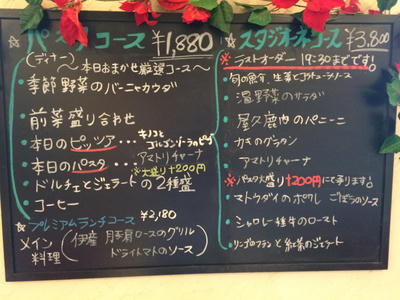 ☆パネスコース ¥1,880
(ディナー)
〜本日おまかせ厳選コース〜
・季節野菜のバーニャカウダ
・前菜盛り合わせ
・本日のピッツァ… キノコと
ゴルゴンゾーラのピザ
・本日のパスタ… アマトリチャーナ
※大盛り+200円
・ドルチェとジェラートの2種盛
・コーヒー
☆プレミアムランチコース ¥2,180
メイン料理(伊産 月系肩ロースのグリル
ドライトマトのソース)
☆スタジオーネコース ¥3,800
※ラストオーダー 19:30までです!
・旬の魚介、生菜と
・温野菜のサラダ
・屋久鹿肉のパニーニ
・カキのグラタン
・アマトリチャーナ
※パスタ大盛り+200円にて承ります!
・マトウダイのポワレ ごぼうのソース
・シャロレー種牛のロースト
・リンゴのフランと紅茶のジェラート